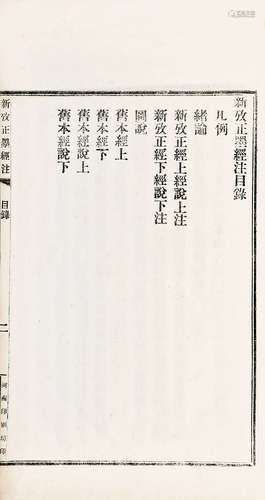 新攷正墨經注目錄
凡例
緒論
新攷正經上經說上注
新攷正經下經說下注
圖說
舊本經上
舊本經下
舊本經說上
舊本經說下
新攷正墨經注
目錄
二
河南印刷局印